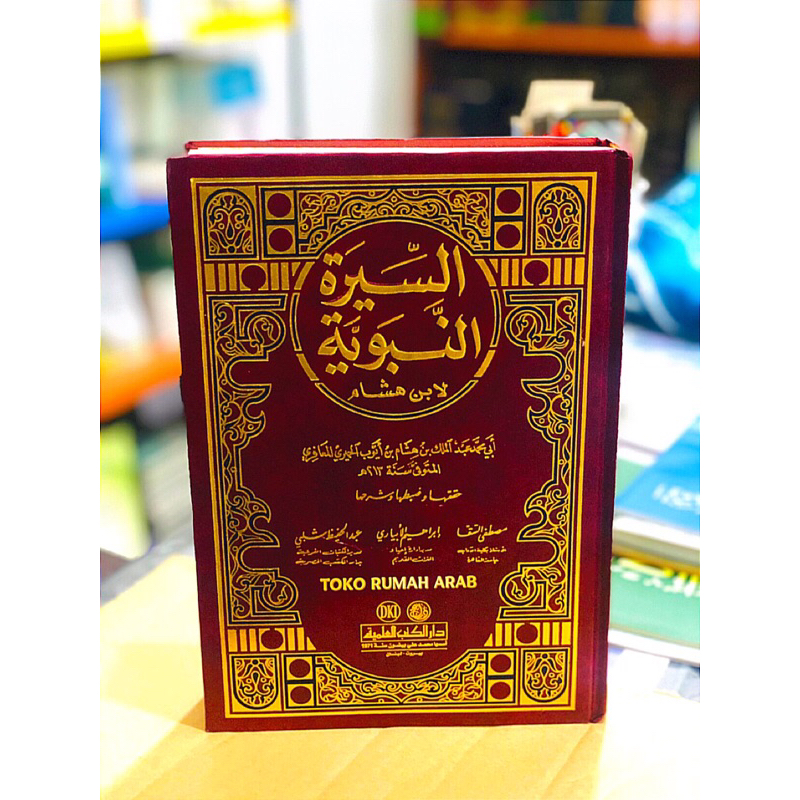 السِّيرَة
النَّبَوِيَّة
لابن هشام
أبي محمد عبد الملك بن هشام بن أيوب الحميري المعافري
المتوفى سنة ٢١٣ هـ
حققها وضبطها وشرحها
مصطفى السقا إبراهيم الأبياري عبد الحفيظ شلبي
TOKO RUMAH ARAB
DKI
دار الكتب العلمية
أسسها محمد علي بيضون سنة 1971
بيروت - لبنان